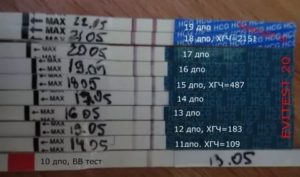 MAX 22.05 19 дпо
MAX 21.05 18 дпо, ХГЧ=2151
MAX 20.05 17 дпо
MAX 19.05 16 дпо
MAX 18.05 15 дпо, ХГЧ=487
MAX 17.05 14 дпо
MAX 16.05 13 дпо
MAX 15.05 12 дпо, ХГЧ=183
MAX 14.05 11дпо, ХГЧ=109
10 дпо, BB тест 13.05
HCG HCG HCG HCG
EVITEST 20